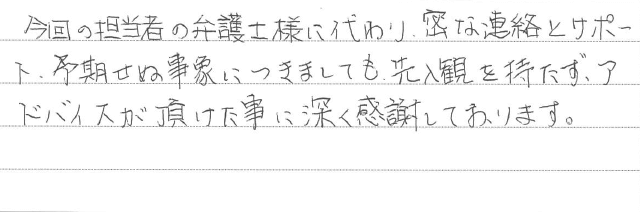 今回の担当者の弁護士様に代わり、密な連絡とサポー
ト、予期せぬ事象につきましても、先入観を持たず、ア
ドバイスが頂けた事に深く感謝しております。